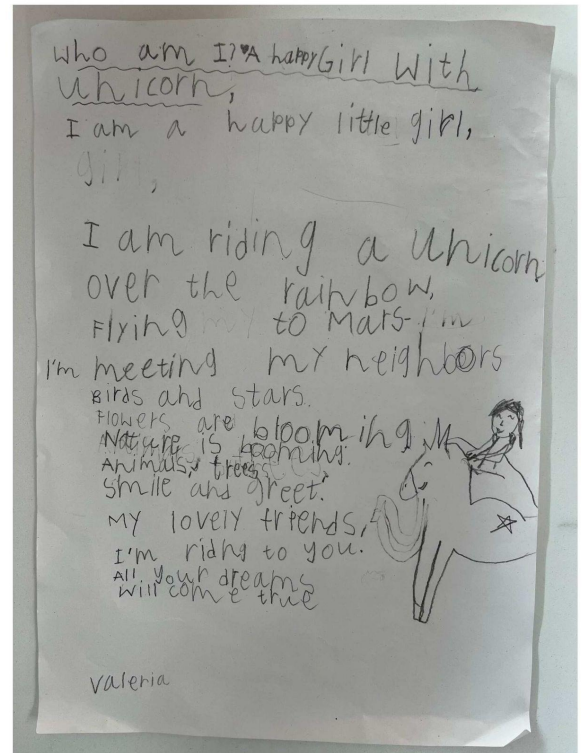 Who am I? A happy Girl with
unicorn,
I am a happy little girl,
girl,
I am riding a unicorn
over the rainbow,
Flying my to Mars- I'm
I'm meeting my neighbors
Birds and stars.
Flowers are blooming
Nature is booming.
Animals, trees
smile and greet.
My lovely friends,
I'm ridng to you.
All your dreams
will come true
Valeria